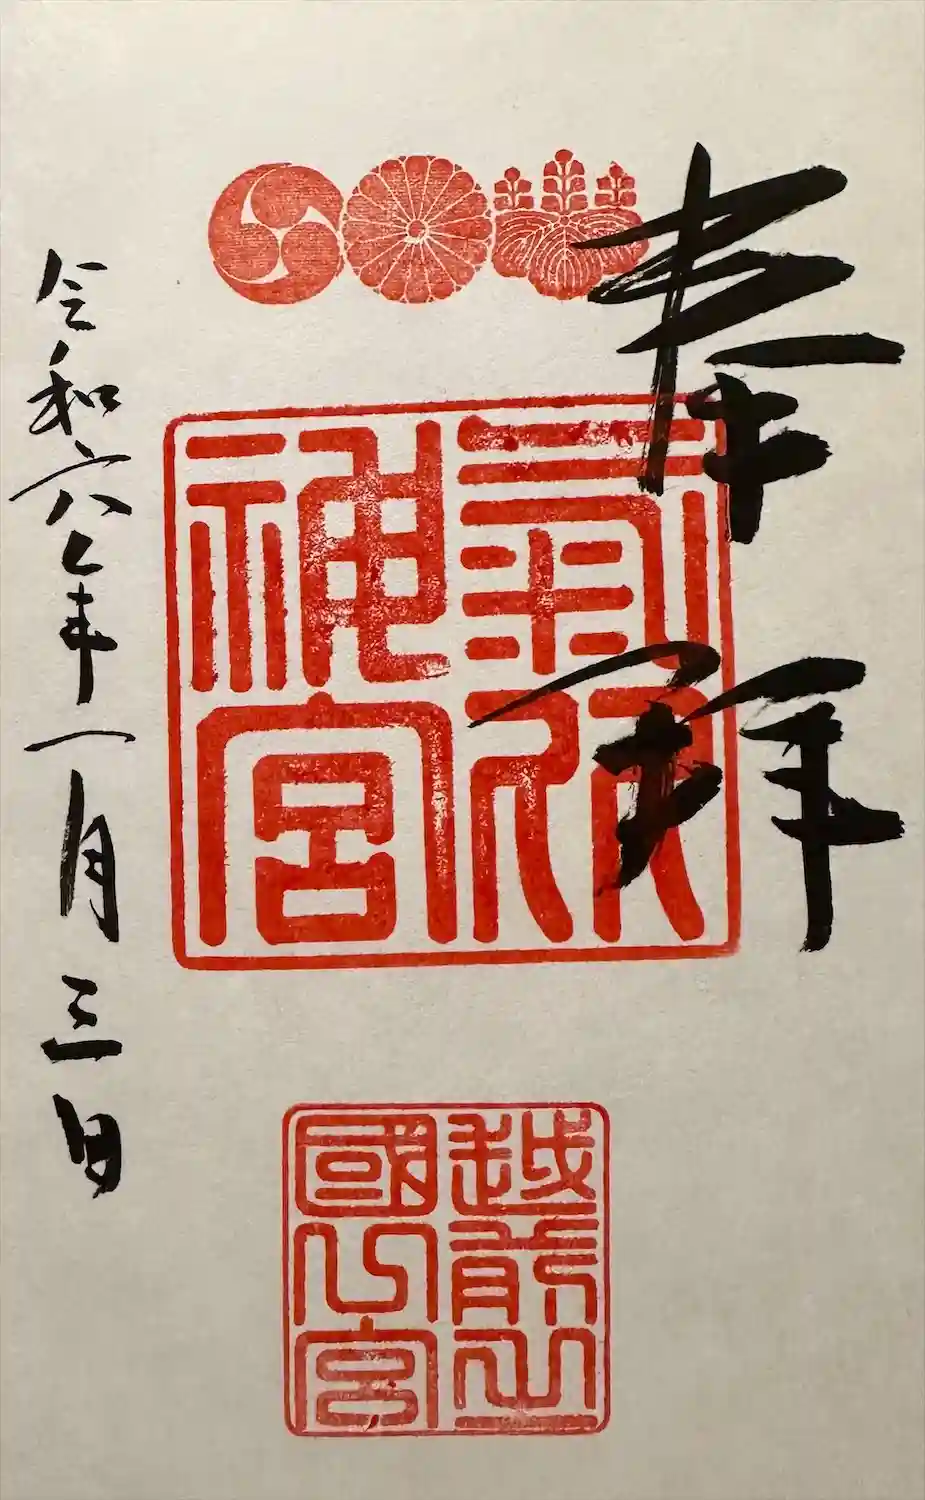 奉拝
氣比
神宮
越前之
國宮
令和六年一月三日